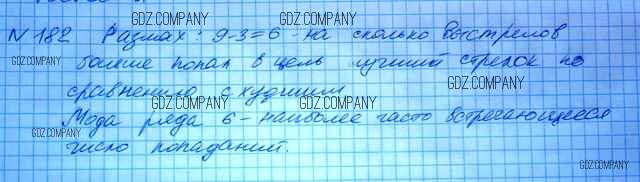 GDZ.COMPANY GDZ.COMPANY GDZ.COMPANY
N 182 Размах: 9-3=6 - на сколько выстрелов
GDZ.COMPANY GDZ.COMPANY
больше попал в цель лучший стрелок по
GDZ.COMPANY
сравнению с худшим
GDZ.COMPANY GDZ.COMPANY
Мода ряда 6 - наиболее часто встречающееся
GDZ.COMPANY
число попаданий.
GDZ.COMPANY
GDZ.COMPANY